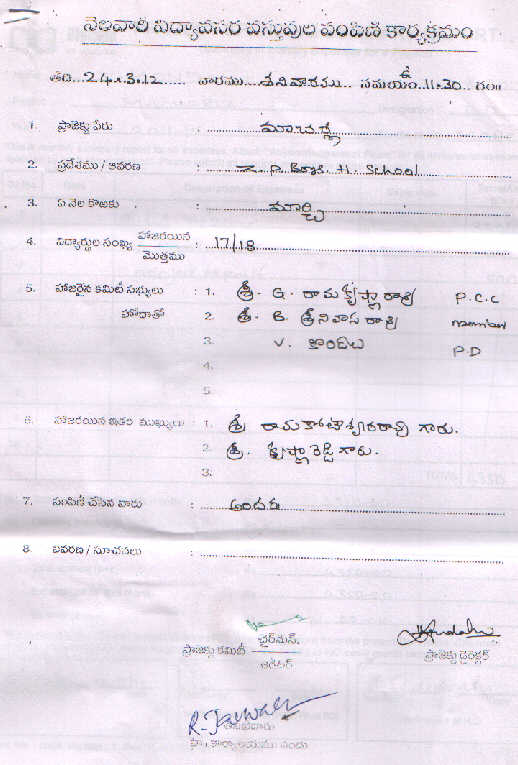 నెలవారి విద్యావసర వస్తువుల పంపిణి కార్యక్రమం
తేది. 24.3.12 వారము శనివారము సమయం ఉ 11.30 గం॥
1. ప్రాజెక్టు పేరు : మాచర్ల
2. ప్రదేశము / ఆవరణ : Z. P. Boys. H. School
3. ఏ నెల కొఱకు : మార్చి
4. విద్యార్థుల సంఖ్య హాజరయిన / మొత్తము : 17/18
5. హాజరైన కమిటీ సభ్యులు : 1. శ్రీ. G. రామకృష్ణా రావు P.C.C
హోదాతో 2. శ్రీ. B. శ్రీనివాస రావు member
3. V. P.D
4.
5.
6. హాజరయిన ఇతర ముఖ్యులు : 1. శ్రీ రామకోటేశ్వరరావు గారు.
2. శ్రీ. కృష్ణారెడ్డి గారు.
3.
7. పంపిణీ చేసిన వారు : అందరు
8. వివరణ / సూచనలు :
ప్రాజెక్టు కమిటీ ఛైర్మన్.
ప్రాజెక్టు డైరెక్టర్